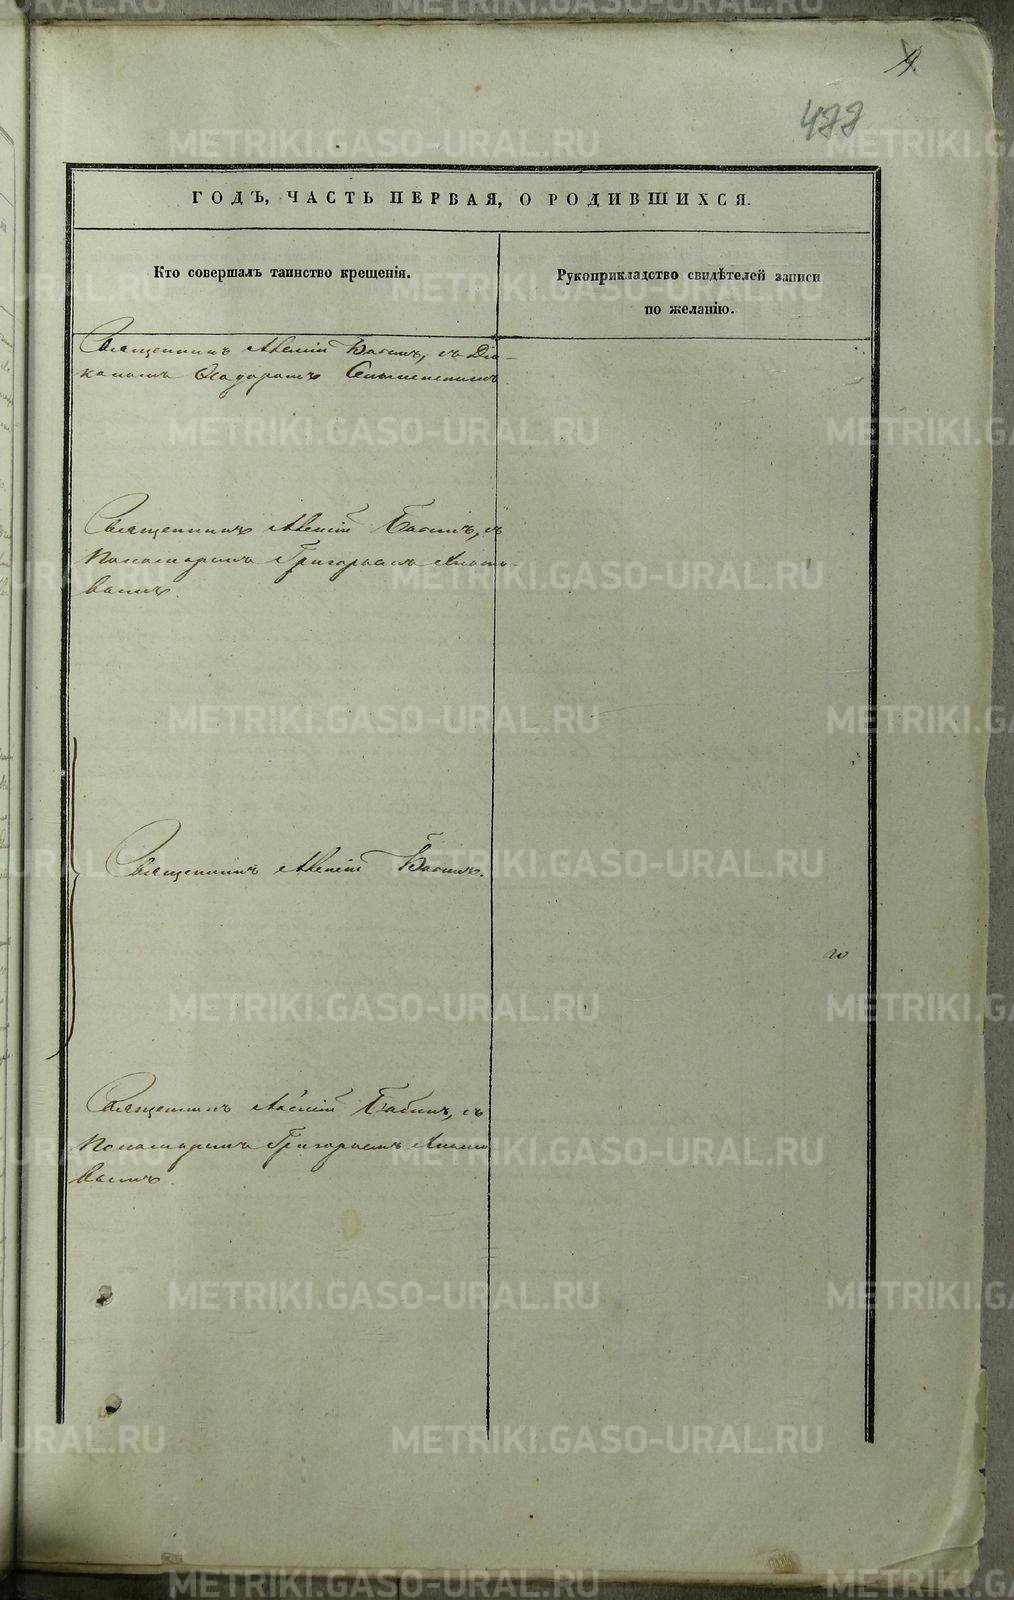 19.
488
ГОДЪ, ЧАСТЬ ПЕРВАЯ, О РОДИВШИХСЯ.
Кто совершалъ таинство крещенія.
Рукоприкладство свидѣтелей записи
по желанію.
Священникъ Алексій Бабинъ, съ Діа-
кономъ Ѳеодоромъ
Священникъ Алексій Бабинъ, съ
Пономаремъ Григорьемъ
Священникъ Алексій Бабинъ.
Священникъ Алексій Бабинъ, съ
Пономаремъ Григорьемъ
METRIKI.GASO-URAL.RU